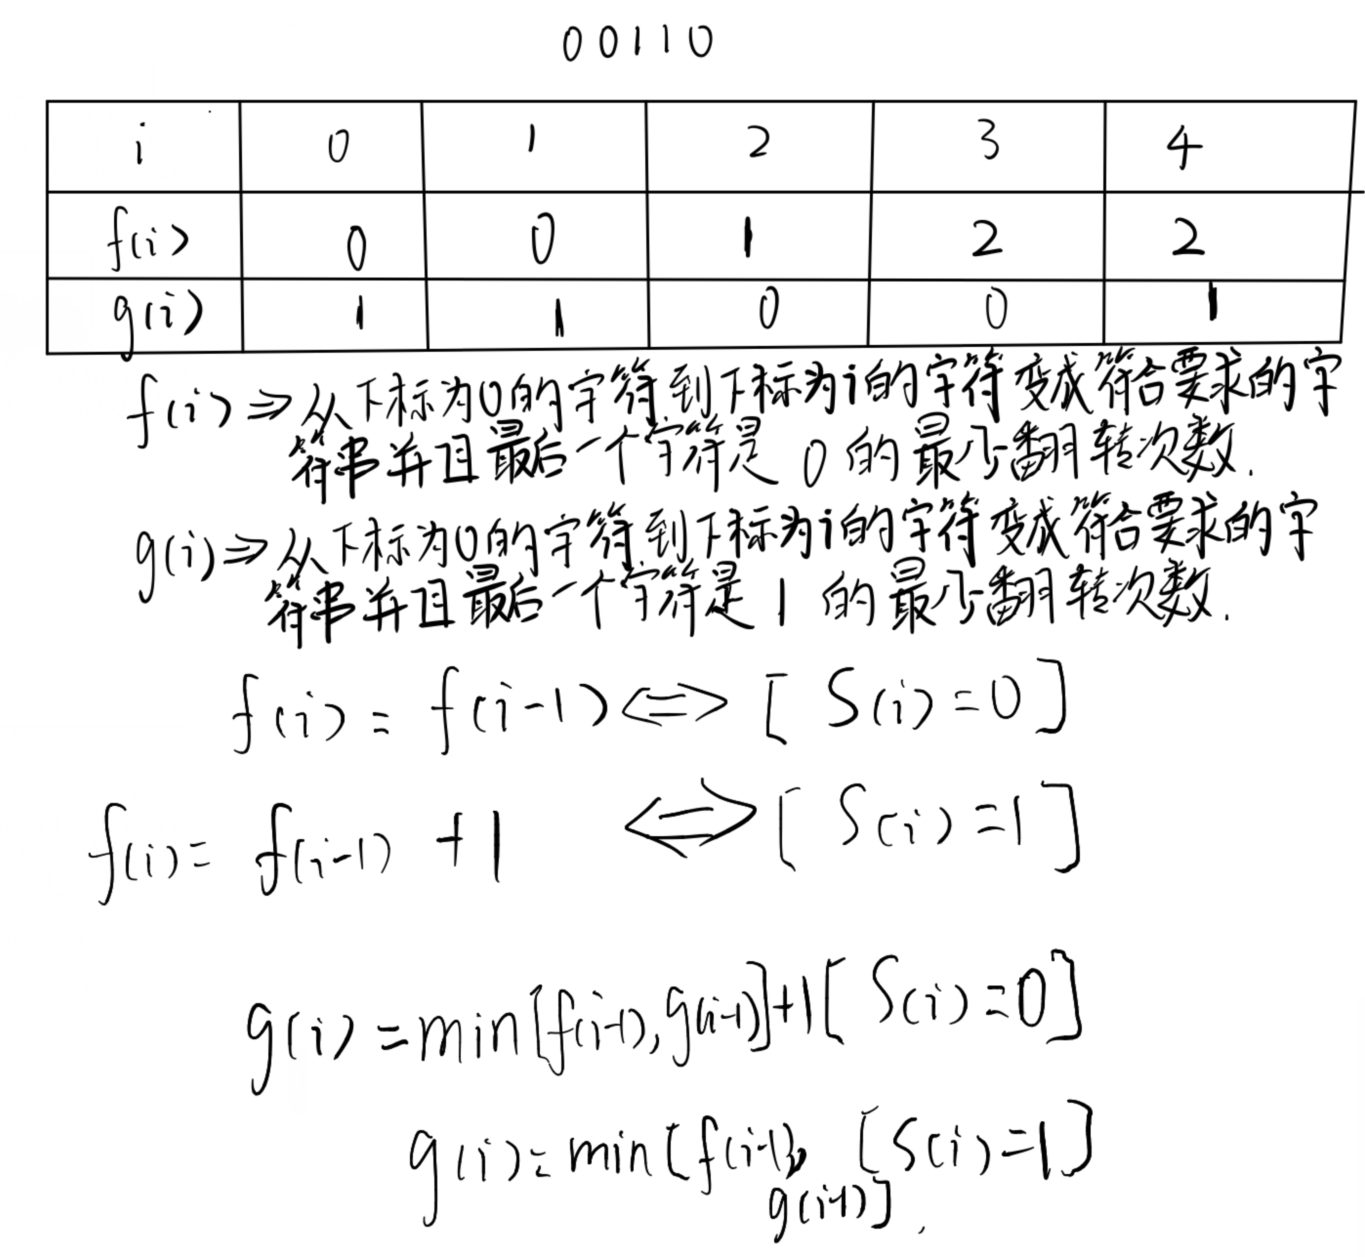 00110
i 0 1 2 3 4
f(i) 0 0 1 2 2
g(i) 1 1 0 0 1
f(i) ⇒ 从下标为0的字符到下标为i的字符变成符合要求的字
符串并且最后一个字符是 0 的最少翻转次数.
g(i) ⇒ 从下标为0的字符到下标为i的字符变成符合要求的字
符串并且最后一个字符是 1 的最少翻转次数.
f(i) = f(i-1) ⇔ [ S(i)=0 ]
f(i) = f(i-1) +1 ⇔ [ S(i)=1 ]
g(i) = min[f(i-1), g(i-1)]+1 [ S(i)=0 ]
g(i) = min[f(i-1), [S(i)=1]
g(i-1)].